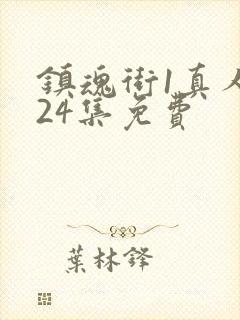 鎮魂街1真人
24集免費
葉林鋒